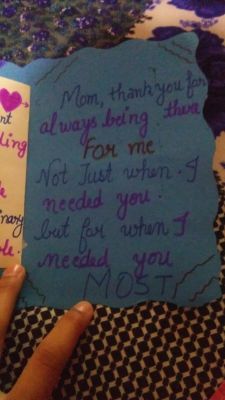 nt
ling
Mom, thank you for
always being there
For me
Not Just when I
needed you.
but for when I
needed you
MOST,